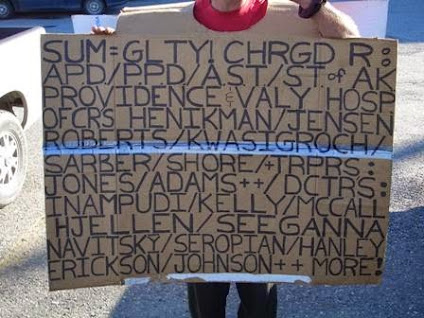 SUM=GLTY! CHRGD R:
APD/PPD/AST/ST of AK
PROVIDENCE & VALY HOSP
OFCRS HENIKMAN/JENSEN
ROBERTS/KWASIGROCH/
SARBER/SHORE/+TRPRS:
JONES/ADAMS++/DCTRS:
INAMPUDI/KELLY/MCCALL
HJELLEN/SEEGANNA
NAVITSKY/SEROPIAN/HANLEY
ERICKSON/JOHNSON++ MORE!